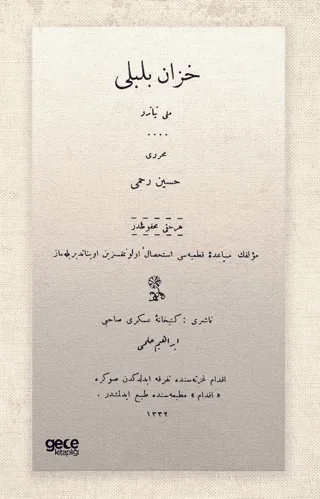 خزان بلبلی
ملی تیاترو
....
محرری
حسین رحمی
هر حقی محفوظدر
مؤلفك مساعدهٔ قطعیه‌سی استحصال اولونمقسزین اویناندیریله‌ماز
ناشری : کتبخانهٔ عسکری صاحبی
ابراهیم حلمی
اقدام غزته‌سنده تفرقه ایدلدکدن صوکره
« اقدام » مطبعه‌سنده طبع ایدلشدر .
۱۳۳۲
gece
kitaplığı